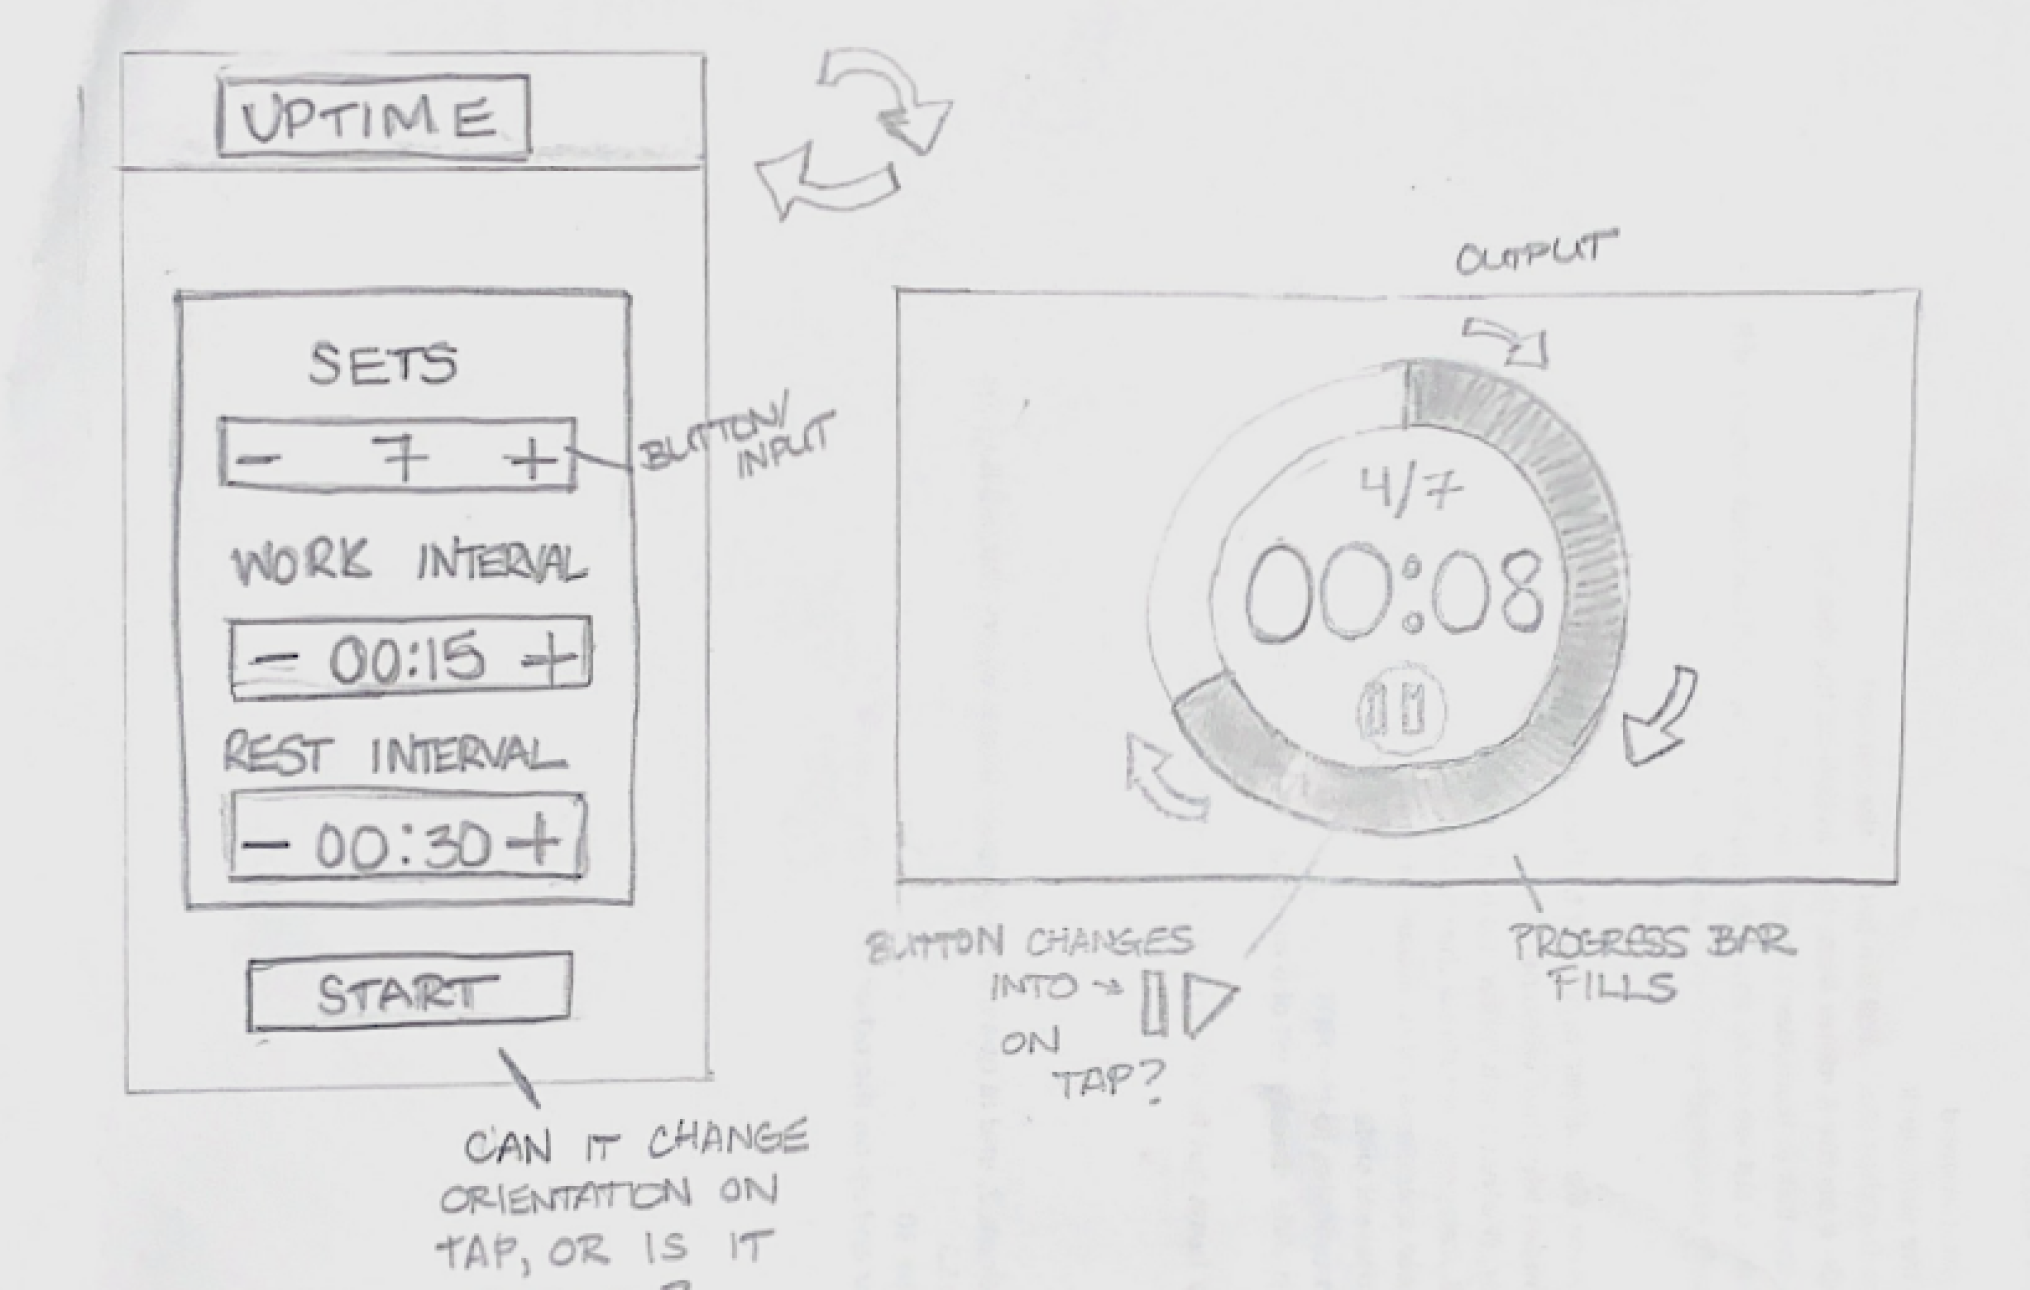 UPTIME
SETS
- 7 +
BUTTON/
INPUT
WORK INTERVAL
- 00:15 +
REST INTERVAL
- 00:30 +
START
CAN IT CHANGE
ORIENTATION ON
TAP, OR IS IT
OUTPUT
4/7
00:08
BUTTON CHANGES
INTO →
ON
TAP?
PROGRESS BAR
FILLS